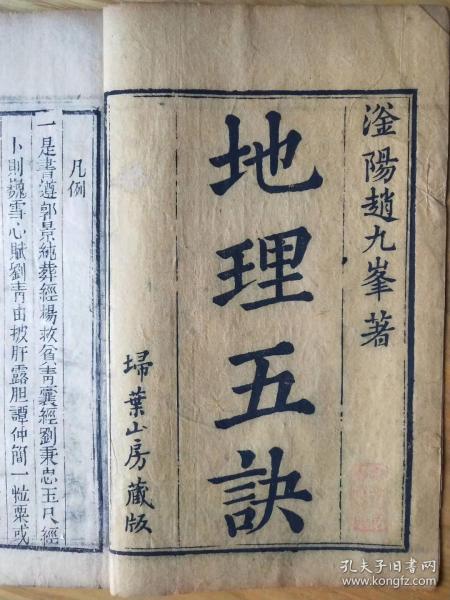 滏陽趙九峯著
地理五訣
埽葉山房藏版
凡例
一是書遵郭景純葬經楊救貧青囊經劉秉忠玉尺經
卜則巍雪心賦劉青田披肝露胆譚仲簡一粒粟或
孔夫子旧书网
www.kongfz.com